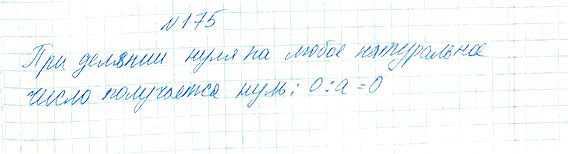 №175
При делении нуля на любое натуральное
число получается нуль: 0:a=0